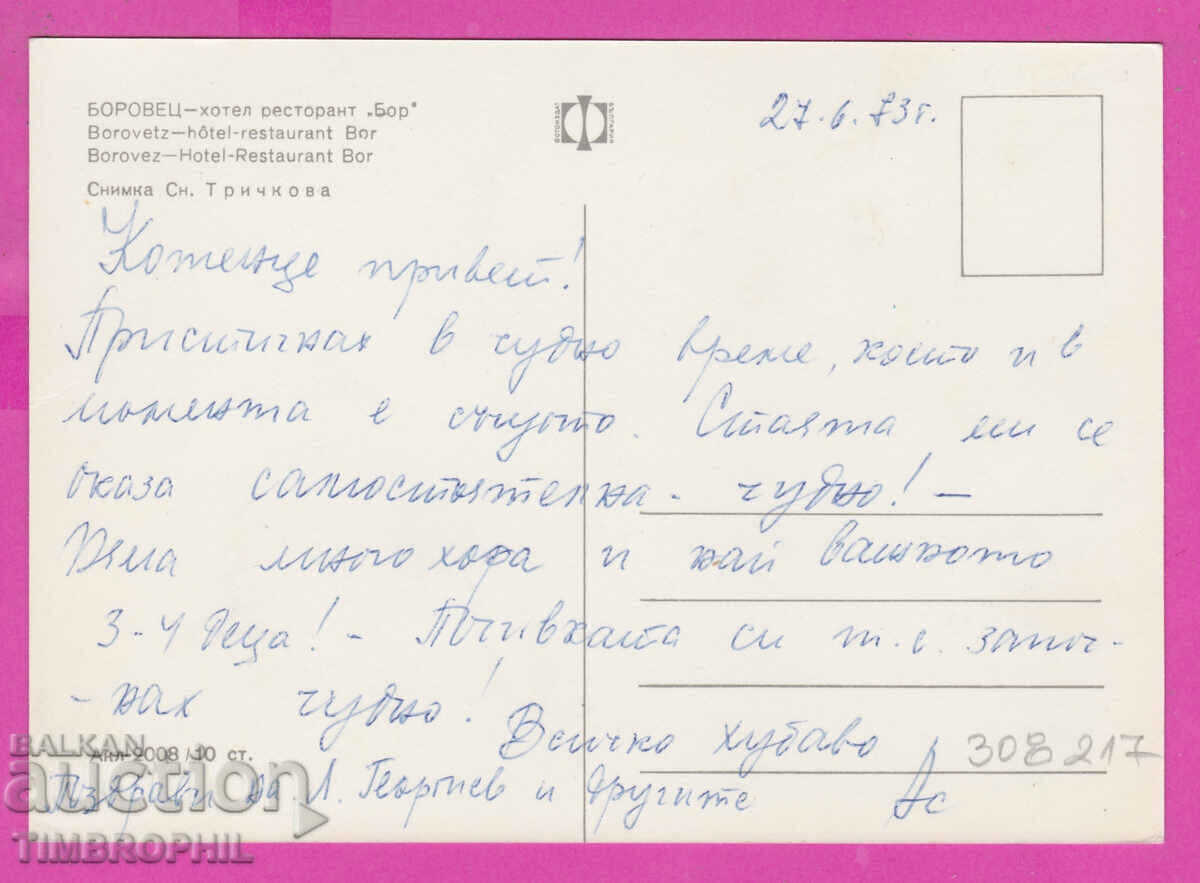 БОРОВЕЦ—хотел ресторант „Бор"
Borovetz—hôtel-restaurant Bor
Borovez—Hotel-Restaurant Bor
Снимка Сн. Тричкова
ФОТОИЗДАТ
БЪЛГАРИЯ
27.6.73г.
Коженце привет!
Пристигнах в чудно време, което и в
момента е същото. Стаята ми се
оказа самостоятелна - чудно! -
Няма много хора и най важното
3-4 деца! - Почивката си т.е. започ-
-нах чудно!
Всичко хубаво
Поздрави на Л. Георгиев и другите Ас
Акл-2008/10 ст.
308217
BALKAN
auction
TIMBROPHIL